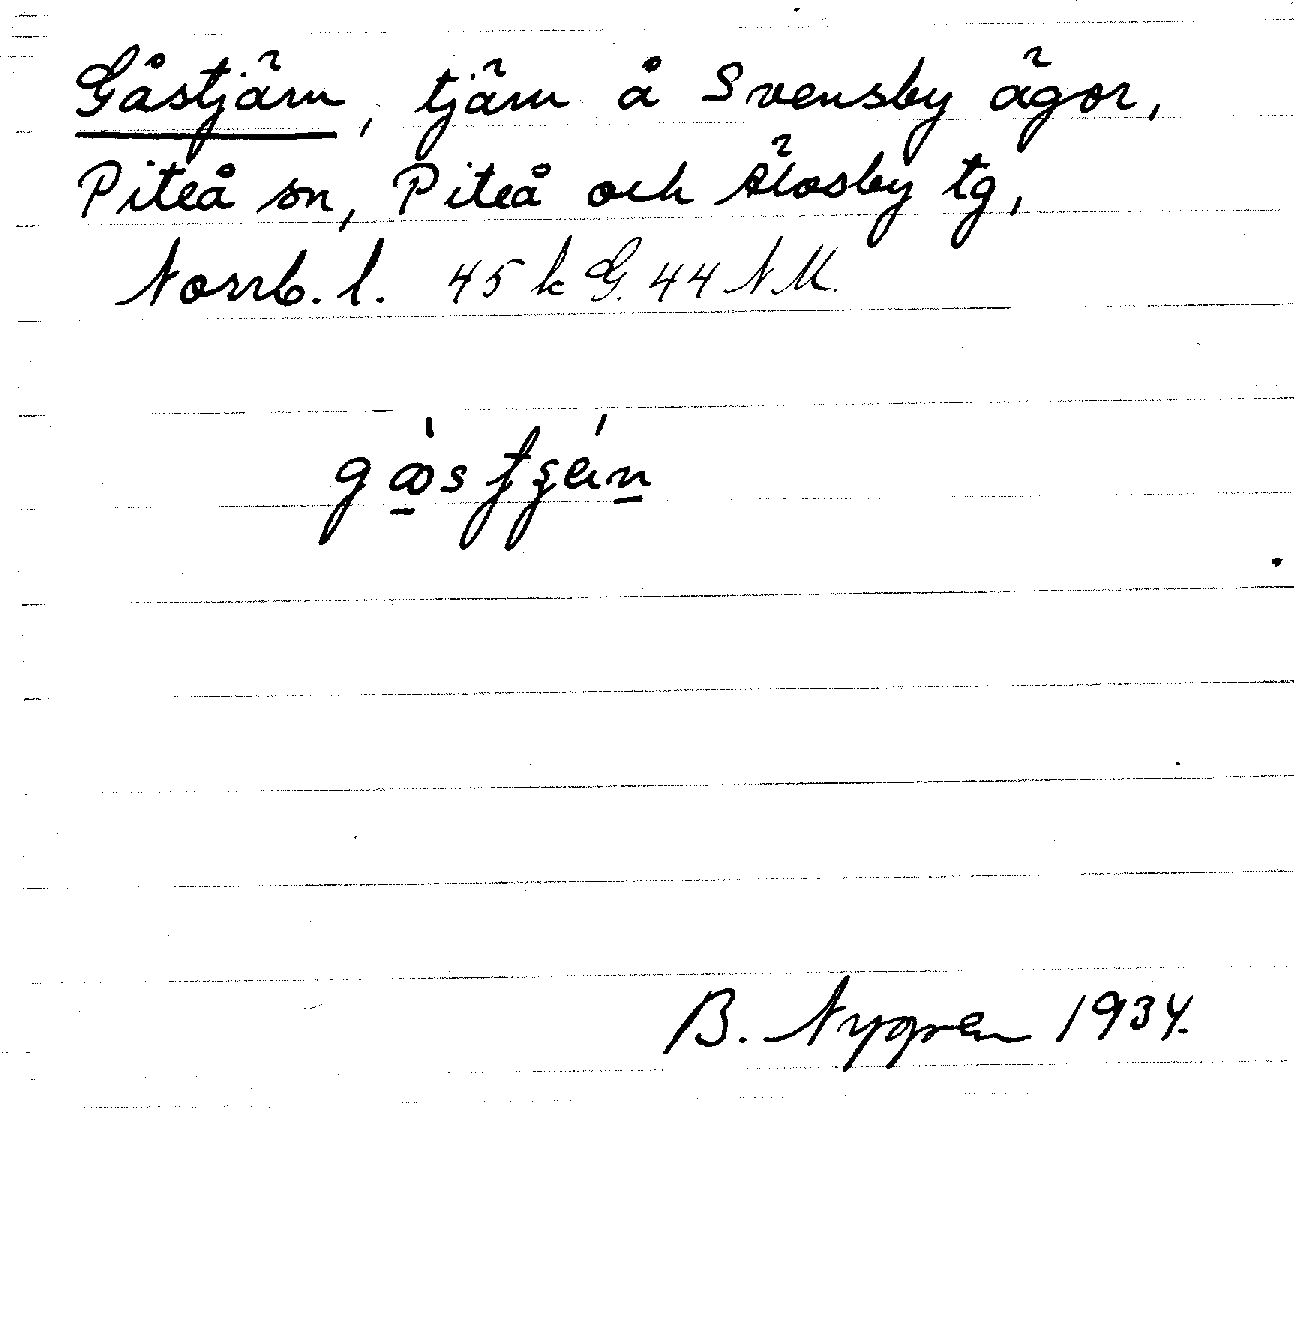 Gåstjärn, tjärn å Svensby ägor,
Piteå sn, Piteå och Älvsby tg,
Norrb. l. 45 k G. 44 N M.
B. Nygren 1934.